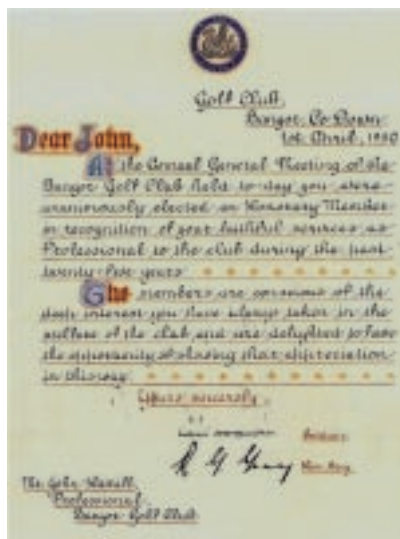 Golf Club,
Bangor, Co Down
1st April, 1950
Dear John,
At the Annual General Meeting of the
Bangor Golf Club held to-day you were
unanimously elected an Honorary Member
in recognition of your faithful services as
Professional to the club during the past
twenty-five years
The members are conscious of the
deep interest you have always taken in the
welfare of the club and are delighted to have
the opportunity of showing their appreciation
in this way.
Yours sincerely,
Hon. Secy.
John
Professional,
Bangor Golf Club